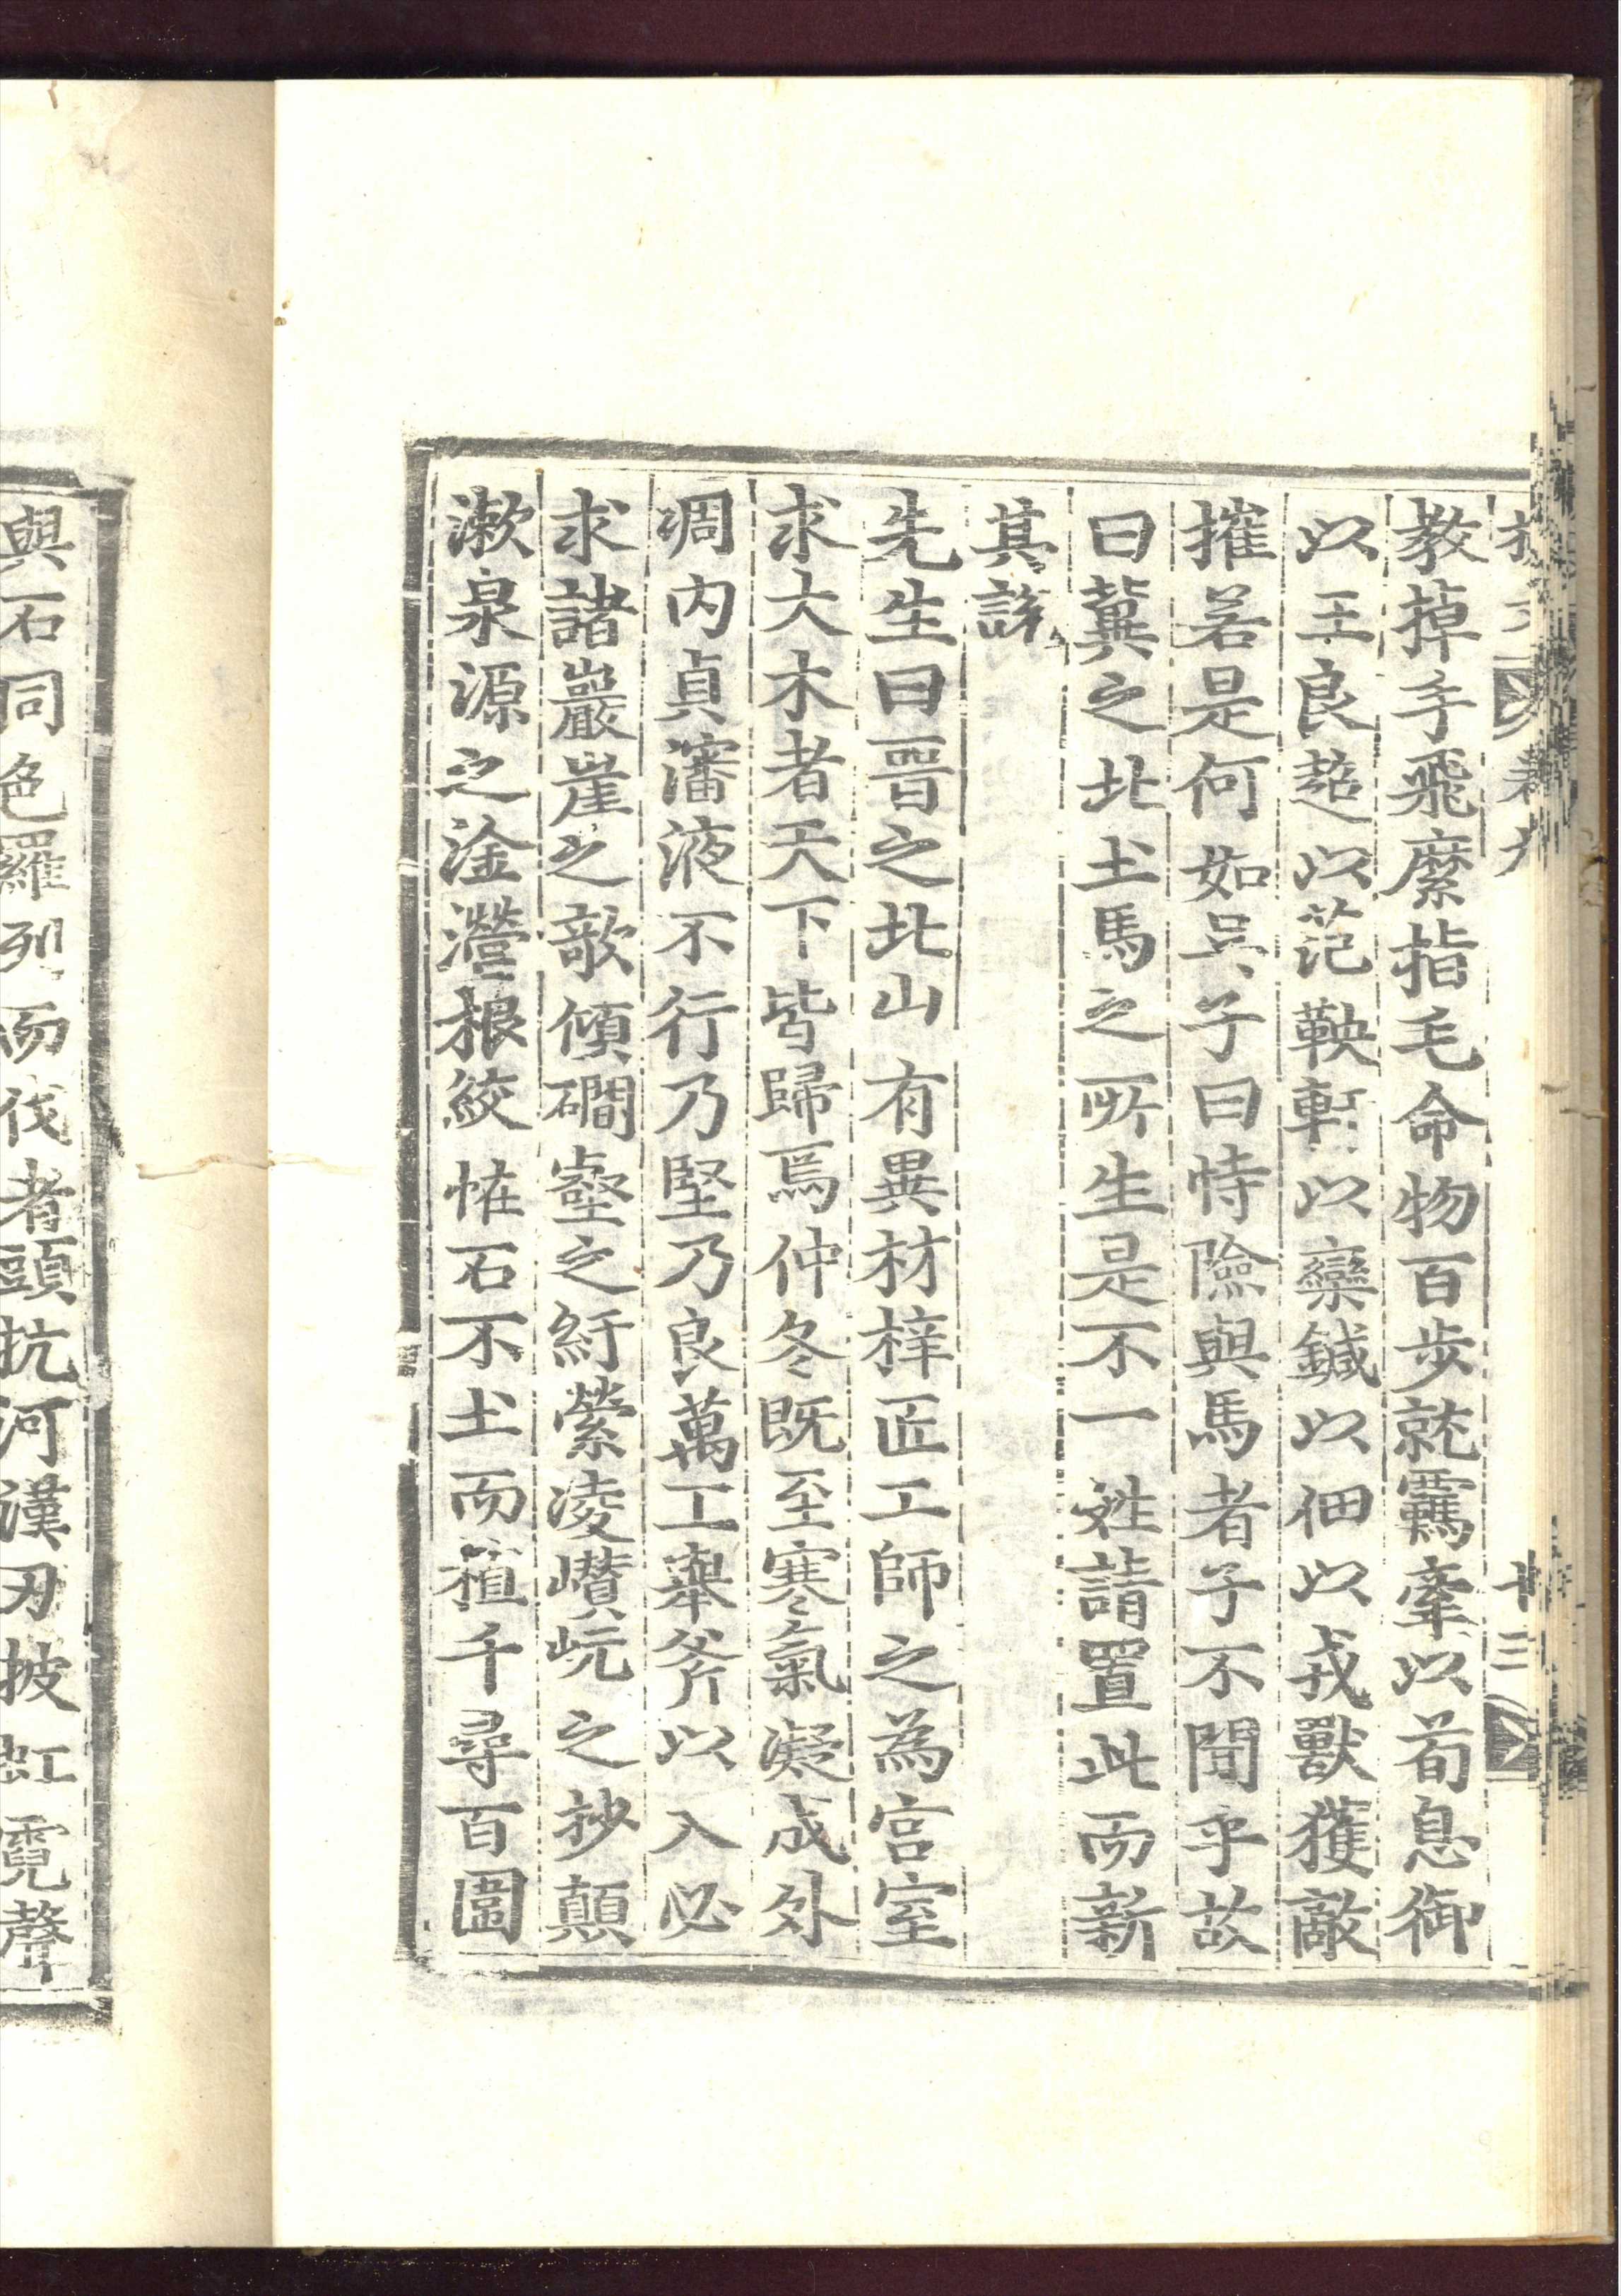 教掉手飛縻指毛命物百步就羈牽以荀息御
以王良超以范鞅軒以欒鍼以佃以戎獸獲敵
摧若是何如吳子曰恃險與馬者子不聞乎故
曰冀之北土馬之所生是不一姓請置此而新
其說
先生曰晉之北山有異材梓匠工師之為宮室
求大木者天下皆歸焉仲冬既至寒氣凝成外
凋內貞瀋液不行乃堅乃良萬工舉斧以入必
求諸巖崖之欹傾礀壑之紆縈凌巑岏之抄顛
漱泉源之淦瀯根絞恠石不土而植千尋百圍
與石同色羅列而伐者頭抗河漢刃披虹霓聲
十三